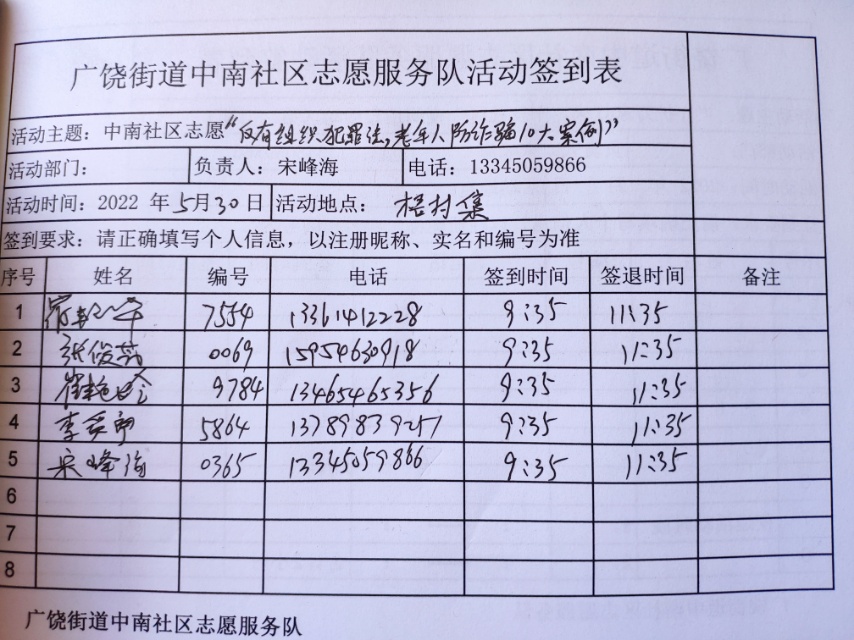 广饶街道中南社区志愿服务队活动签到表
活动主题：中南社区志愿“反有组织犯罪法,老年人防诈骗10大案例”
活动部门： 负责人：宋峰海 电话：13345059866
活动时间：2022 年5月30日 活动地点： 梧村集
签到要求：请正确填写个人信息，以注册昵称、实名和编号为准
序号 姓名 编号 电话 签到时间 签退时间 备注
1 7554 13361412228 9:35 11:35
2 张俊 0069 15954630918 9:35 11:35
3 崔艳 9784 13465465356 9:35 11:35
4 李 5864 13789839257 9:35 11:35
5 宋峰海 0365 13345059866 9:35 11:35
6
7
8
广饶街道中南社区志愿服务队